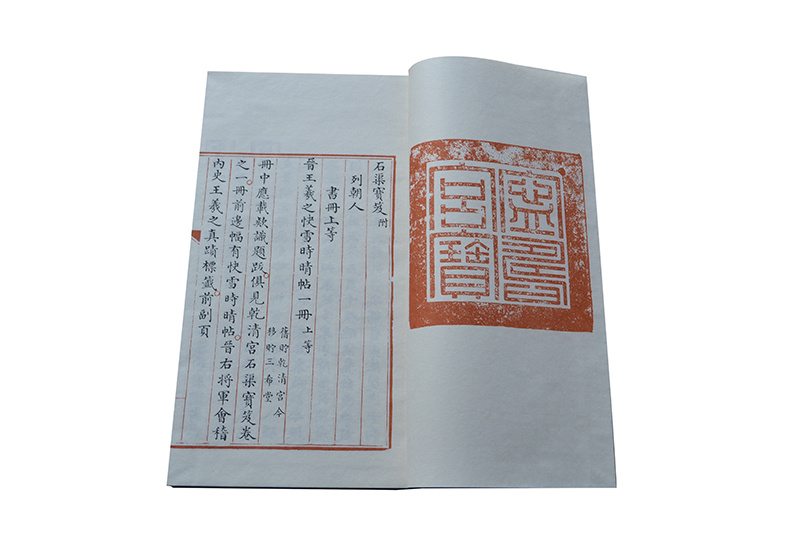 寧壽宮寶
石渠寶笈附
列朝人
書冊上等
晉王羲之快雪時晴帖一冊上等
舊貯乾清宮今
移貯三希堂
冊中應載欵識題跋俱見乾清宮石渠寶笈卷
之一冊前邊幅有快雪時晴帖晉右將軍會稽
內史王羲之真蹟標籤前副頁